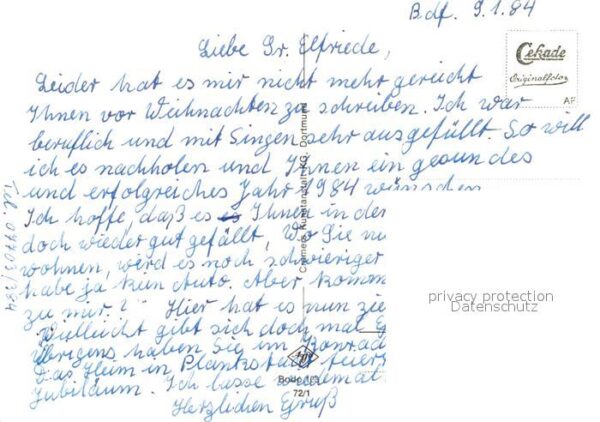 Bdf. 9.1.84
Liebe Sr. Elfriede,
Cekade
Originalfoto
AF
Leider hat es mir nicht mehr gereicht
Ihnen vor Weihnachten zu schreiben. Ich war
beruflich und mit Singen sehr ausgefüllt. So will
ich es nachholen und Ihnen ein gesundes
und erfolgreiches Jahr 1984 wünschen
Ich hoffe, daß es Ihnen in der
doch wieder gut gefällt, Wo Sie nu
wohnen, wird es noch schwieriger
habe ja kein Auto. Aber komm
zu mir.? Hier hat es nun zie
Vielleicht gibt sich doch mal
Übrigens haben Sie im Konrad
Das Heim in Plankstadt feier
Jubiläum. Ich lasse
Herzlichen Gruß
Cramers Kunstanstalt KG, Dortmund
Bode
72/1
privacy protection
Datenschutz